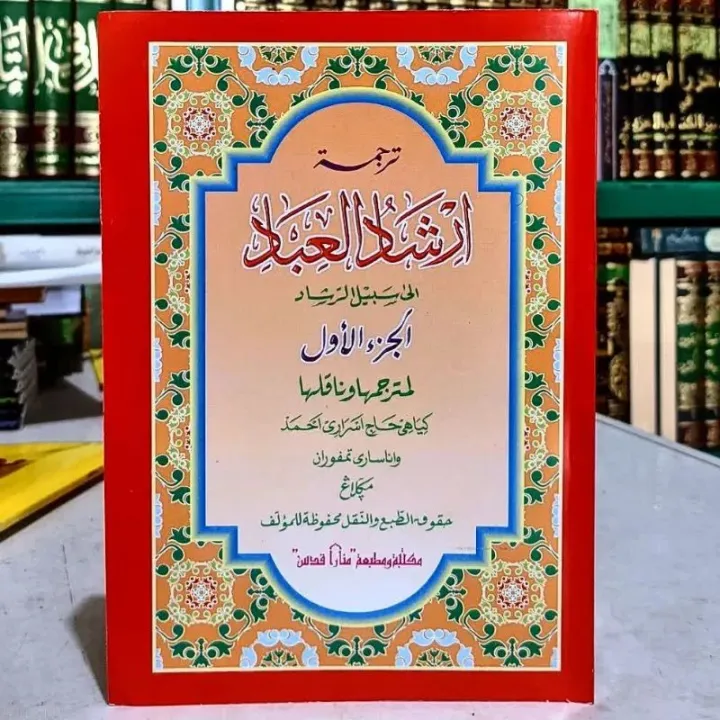 ترجمة
اِرْشَادُ الْعِبَادِ
الى سبيل الرشاد
الجزء الأول
لمترجمها وناقلها
كياهي حاج اسراري احمد
واناساري تمفوران
مكلاڠ
حقوق الطبع والنقل محفوظة للمؤلف
مكتبة ومطبعة "منارا قدس"